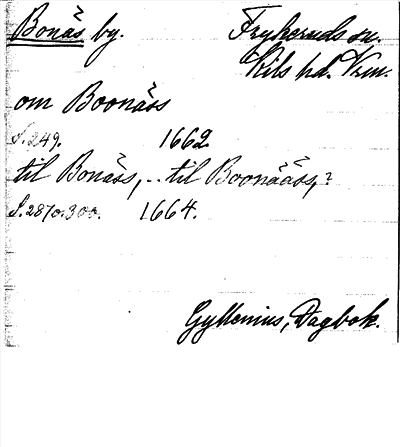 Bonäs by. Fryksruds sn.
Kils hd. Vrm.
om Boonäss
S. 249. 1662
til Bonäss, .. til Boonääss,
S. 287 o. 300. 1664.
Gyllenius, Dagbok.